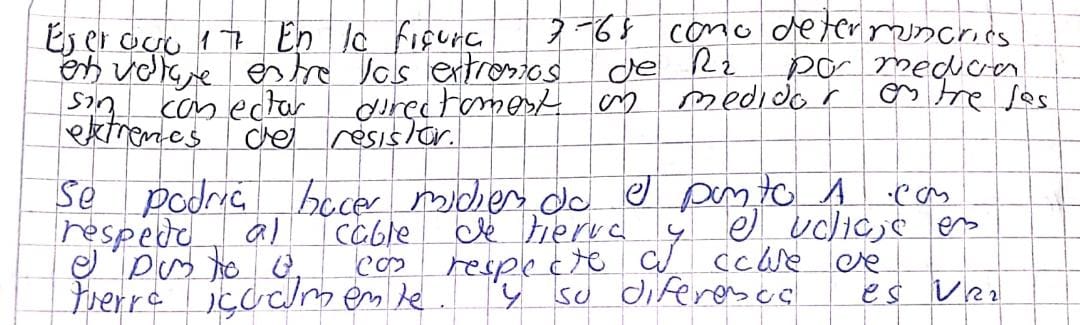 Esercicio 17 En la figura 7-68 como determinarías
en voltaje entre los extremos de R2 por medicion
sin conectar directament un medidor entre los
extremos del resistor.
Se podria hacer midiendo el punto A con
respecto al cable de tierra y el voltaje en
el punto B, con respecto al cable de
tierra igualmente. y su diferencia es VR2